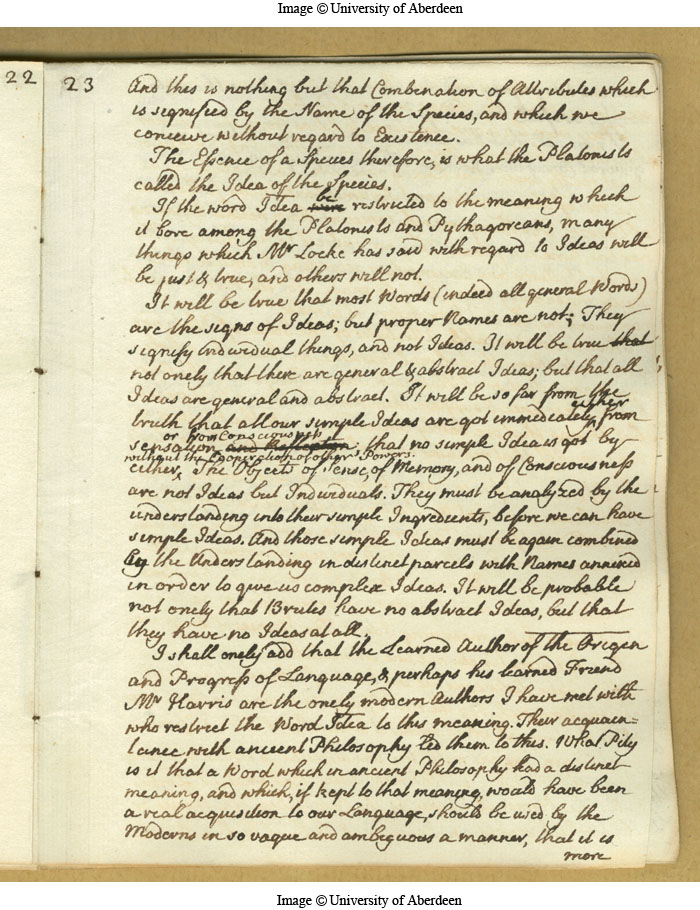 Image © University of Aberdeen
22
23
And this is nothing but that Combination of Attributes which
is signified by the Name of the Species, and which we
conceive without regard to Existence.
The Essence of a Species therefore, is what the Platonists
called the Idea of the Species.
be
If the word Idea were restricted to the meaning which
it bore among the Platonists and Pythagoreans, many
things which Mr Locke has said with regard to Ideas will
be just & true, and others will not.
It will be true that most Words (indeed all general Words)
are the signs of Ideas; but proper Names are not; They
signify individual things, and not Ideas. It will be true that
not onely that there are general & abstract Ideas; but that all
Ideas are general and abstract. It will be so far from the
truth that all our simple Ideas are got immediately from
either
or from Consciousness
sensation and Reflection; that no simple Idea is got by
without the Cooperation of other Powers.
either, The Objects of Sense, of Memory, and of Consciousness
are not Ideas but Individuals. They must be analyzed by the
understanding into their simple Ingredients, before we can have
simple Ideas. And those simple Ideas must be again combined
by the Understanding in distinct parcels with Names annexed
in order to give us complex Ideas. It will be probable
not onely that Brutes have no abstract Ideas, but that
they have no Ideas at all.
I shall onely add that the Learned Author of the Origin
and Progress of Language, & perhaps his learned Friend
Mr Harris are the onely modern Authors I have met with
who restrict the Word Idea to this meaning. Their acquain=
tance with ancient Philosophy led them to this. What Pity
is it that a Word which in ancient Philosophy had a distinct
meaning, and which, if kept to that meaning, would have been
a real acquisition to our Language, should be used by the
Moderns in so vague and ambiguous a manner, that it is
more
Image © University of Aberdeen